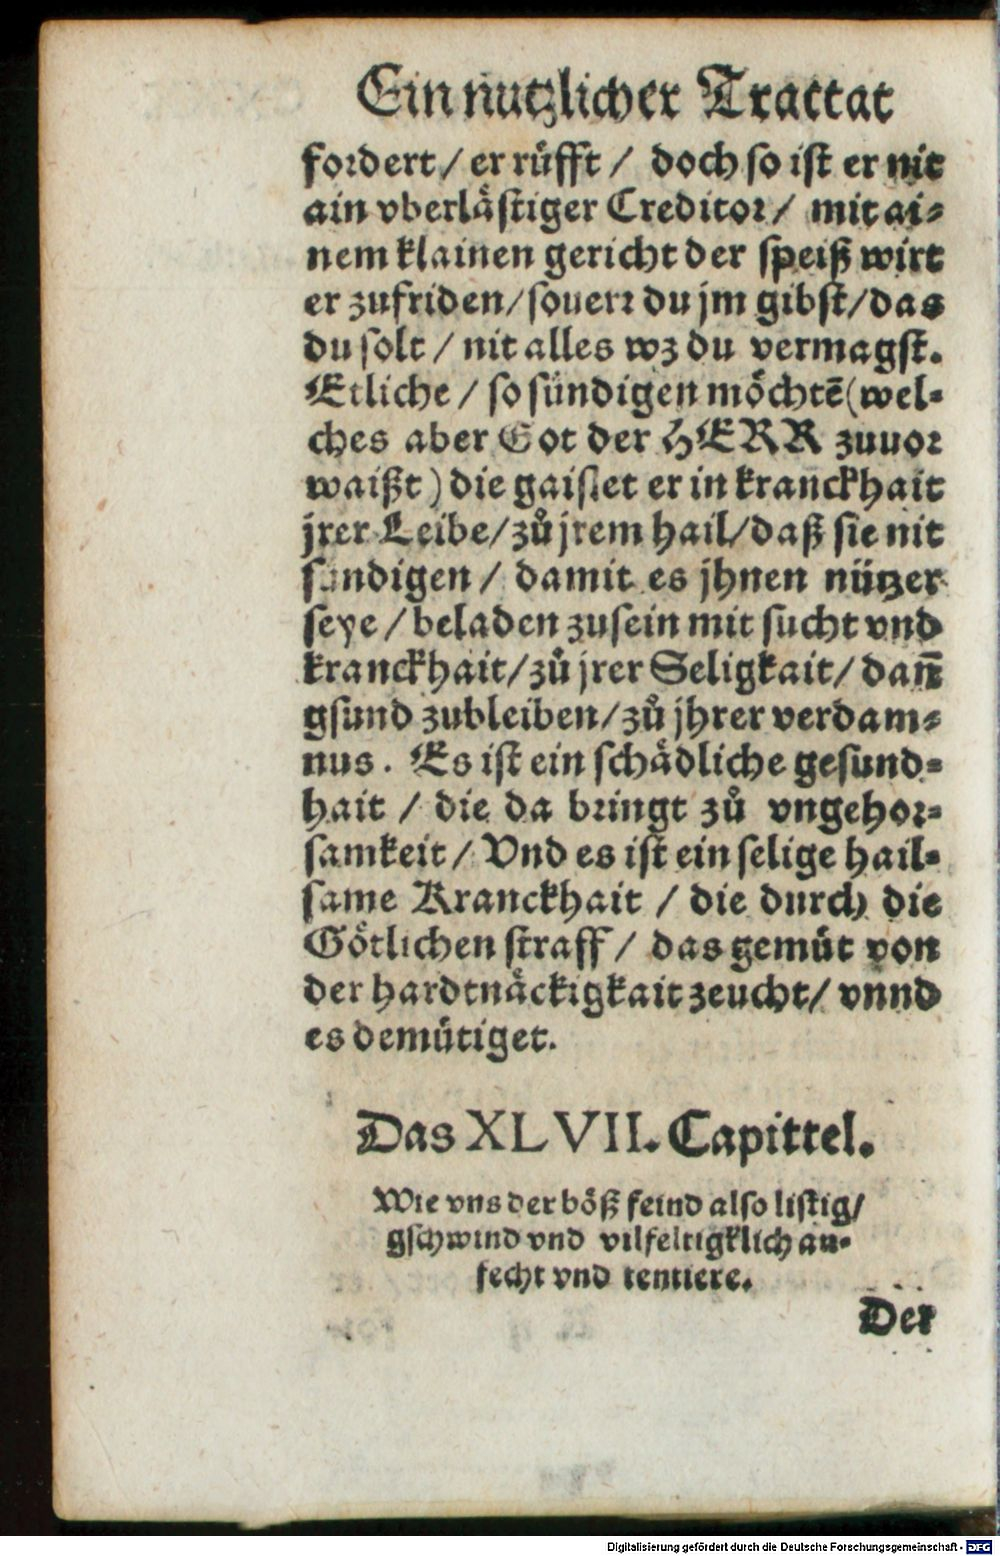 Ein nutzlicher Tractat
fordert / er růfft / doch so ist er nit
ain vberlåstiger Creditor / mit ai⸗
nem klainen gericht der speiß wirt
er zufriden / souerr du jm gibst / das
du solt / nit alles wz du vermagst.
Etliche / so sündigen möchtē (wel⸗
ches aber Got der HERR zuuor
waißt) die gaislet er in kranckhait
jrer Leibe / zů jrem hail / daß sie nit
sündigen / damit es jhnen nützer
seye / beladen zusein mit sucht vnd
kranckhait / zů jrer Seligkait / dañ
gsund zubleiben / zů jhrer verdam⸗
nus. Es ist ein schådliche gesund⸗
hait / die da bringt zů vngehor⸗
samkeit / Vnd es ist ein selige hail⸗
same Kranckhait / die durch die
Götlichen straff / das gemüt von
der hardtnåckigkait zeucht / vnnd
es demütiget.
Das XLVII. Capittel.
Wie vns der böß feind also listig /
gschwind vnd vilfeltigklich an⸗
fecht vnd tentiere.
Der
Digitalisierung gefördert durch die Deutsche Forschungsgemeinschaft - DFG